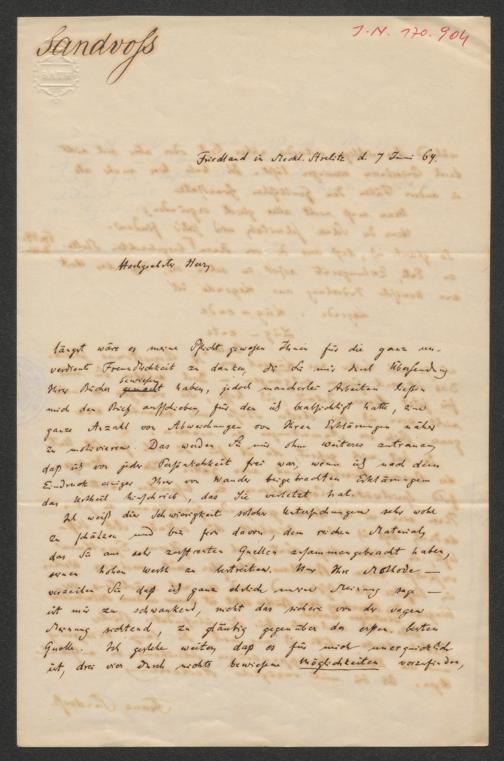 Sandvoß
I. N. 170.904
Friedland in Meckl. Strelitz d. 7 Juni 69.
Hochgeehrter Herr,
längst wäre es meine Pflicht gewesen Ihnen für die ganz un-
verdiente Freundlichkeit zu danken, die Sie mir durch Übersendung
Ihres Buches bewiesen haben, jedoch mancherlei Arbeiten ließen
mich den Brief aufschieben, für den ich beabsichtigt hatte, eine
ganze Anzahl von Abweichungen von Ihren Erklärungen näher
zu motivieren. Das werden Sie mir ohne weiteres zutrauen,
daß ich von jeder Persönlichkeit frei war, wenn ich nach dem
Eindruck einiger Ihrer von Wander beigebrachten Erklärungen
das Urtheil hinschrieb, das Sie verletzt hat.
Ich weiß die Schwierigkeit solcher Untersuchungen sehr wohl
zu schätzen und bin fern davon, dem reichen Materiale,
das Sie aus sehr zerstreuten Quellen zusammengebracht haben,
seinen hohen Werth zu bestreiten. Nur Ihre Methode —
verzeihen Sie, daß ich ganz ehrlich meine Meinung sage —
ist mir zu schwankend, nicht das sichere von der vagen
Meinung sichtend, zu gläubig gegenüber der ersten besten
Quelle. Ich gestehe weiter, daß es für mich unerquicklich
ist, drei vier durch nichts bewiesene Möglichkeiten vorzufinden,